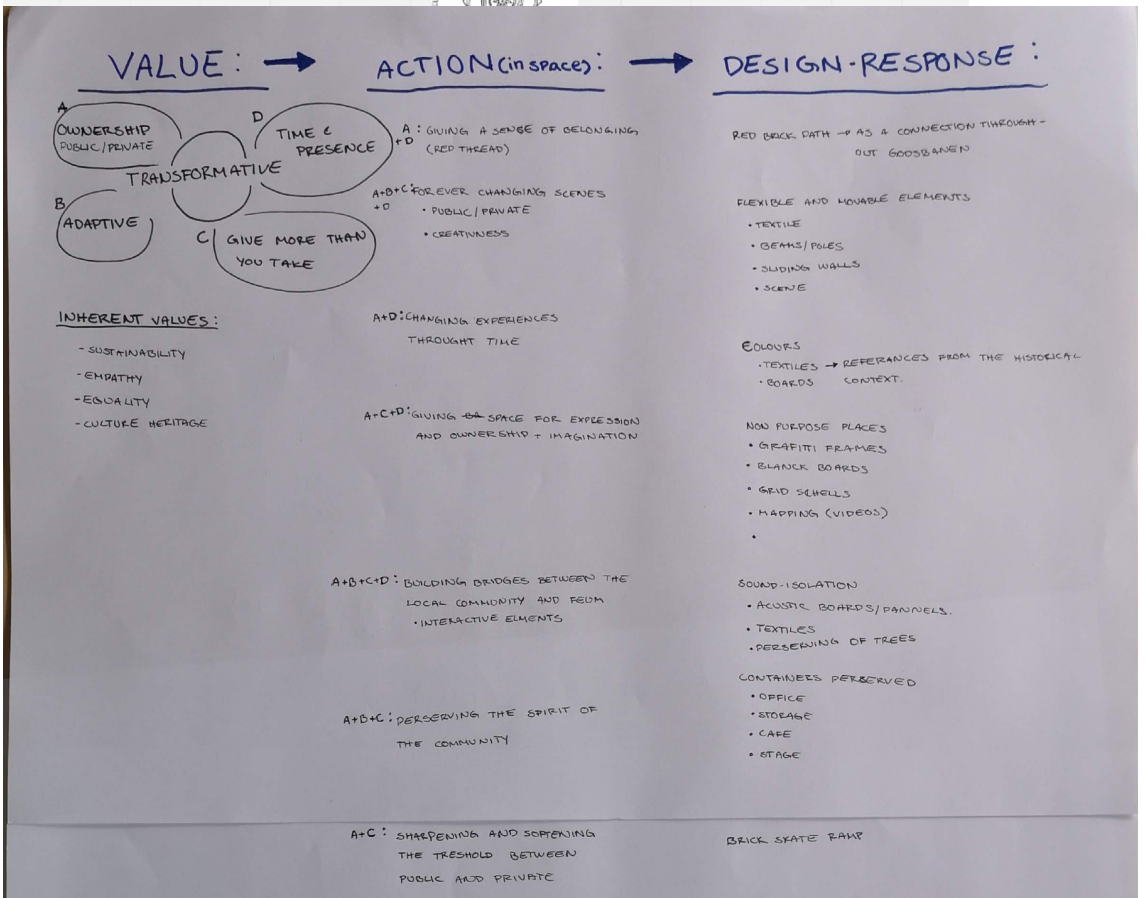 VALUE: → ACTION (in space): → DESIGN-RESPONSE:
A
OWNERSHIP
PUBLIC/PRIVATE
D
TIME &
PRESENCE
TRANSFORMATIVE
B
ADAPTIVE
C
GIVE MORE THAN
YOU TAKE
INHERENT VALUES:
- SUSTAINABILITY
- EMPATHY
- EQUALITY
- CULTURE HERITAGE
A+D: GIVING A SENSE OF BELONGING
(RED THREAD)
A+B+C+D: FOREVER CHANGING SCENES
• PUBLIC/PRIVATE
• CREATIVNESS
A+D: CHANGING EXPERIENCES
THROUGHT TIME
A+C+D: GIVING SPACE FOR EXPRESSION
AND OWNERSHIP + IMAGINATION
A+B+C+D: BUILDING BRIDGES BETWEEN THE
LOCAL COMMUNITY AND
• INTERACTIVE ELMENTS
A+B+C: PERSERVING THE SPIRIT OF
THE COMMUNITY
A+C: SHARPENING AND SOFTENING
THE TRESHOLD BETWEEN
PUBLIC AND PRIVATE
RED BRICK PATH → AS A CONNECTION THROUGH-
OUT GODSBANEN
FLEXIBLE AND MOVABLE ELEMENTS
• TEXTILE
• BEAMS/POLES
• SLIDING WALLS
• SCENE
COLOURS
• TEXTILES → REFERANCES FROM THE HISTORICAL
• BOARDS CONTEXT.
NON PURPOSE PLACES
• GRAFITTI FRAMES
• BLANCK BOARDS
• GRID SCHELLS
• MAPPING (VIDEOS)
•
SOUND-ISOLATION
• ACUSTIC BOARDS/PANNELS.
• TEXTILES
• PERSERVING OF TREES
CONTAINERS PERSERVED
• OFFICE
• STORAGE
• CAFE
• STAGE
BRICK SKATE RAMP